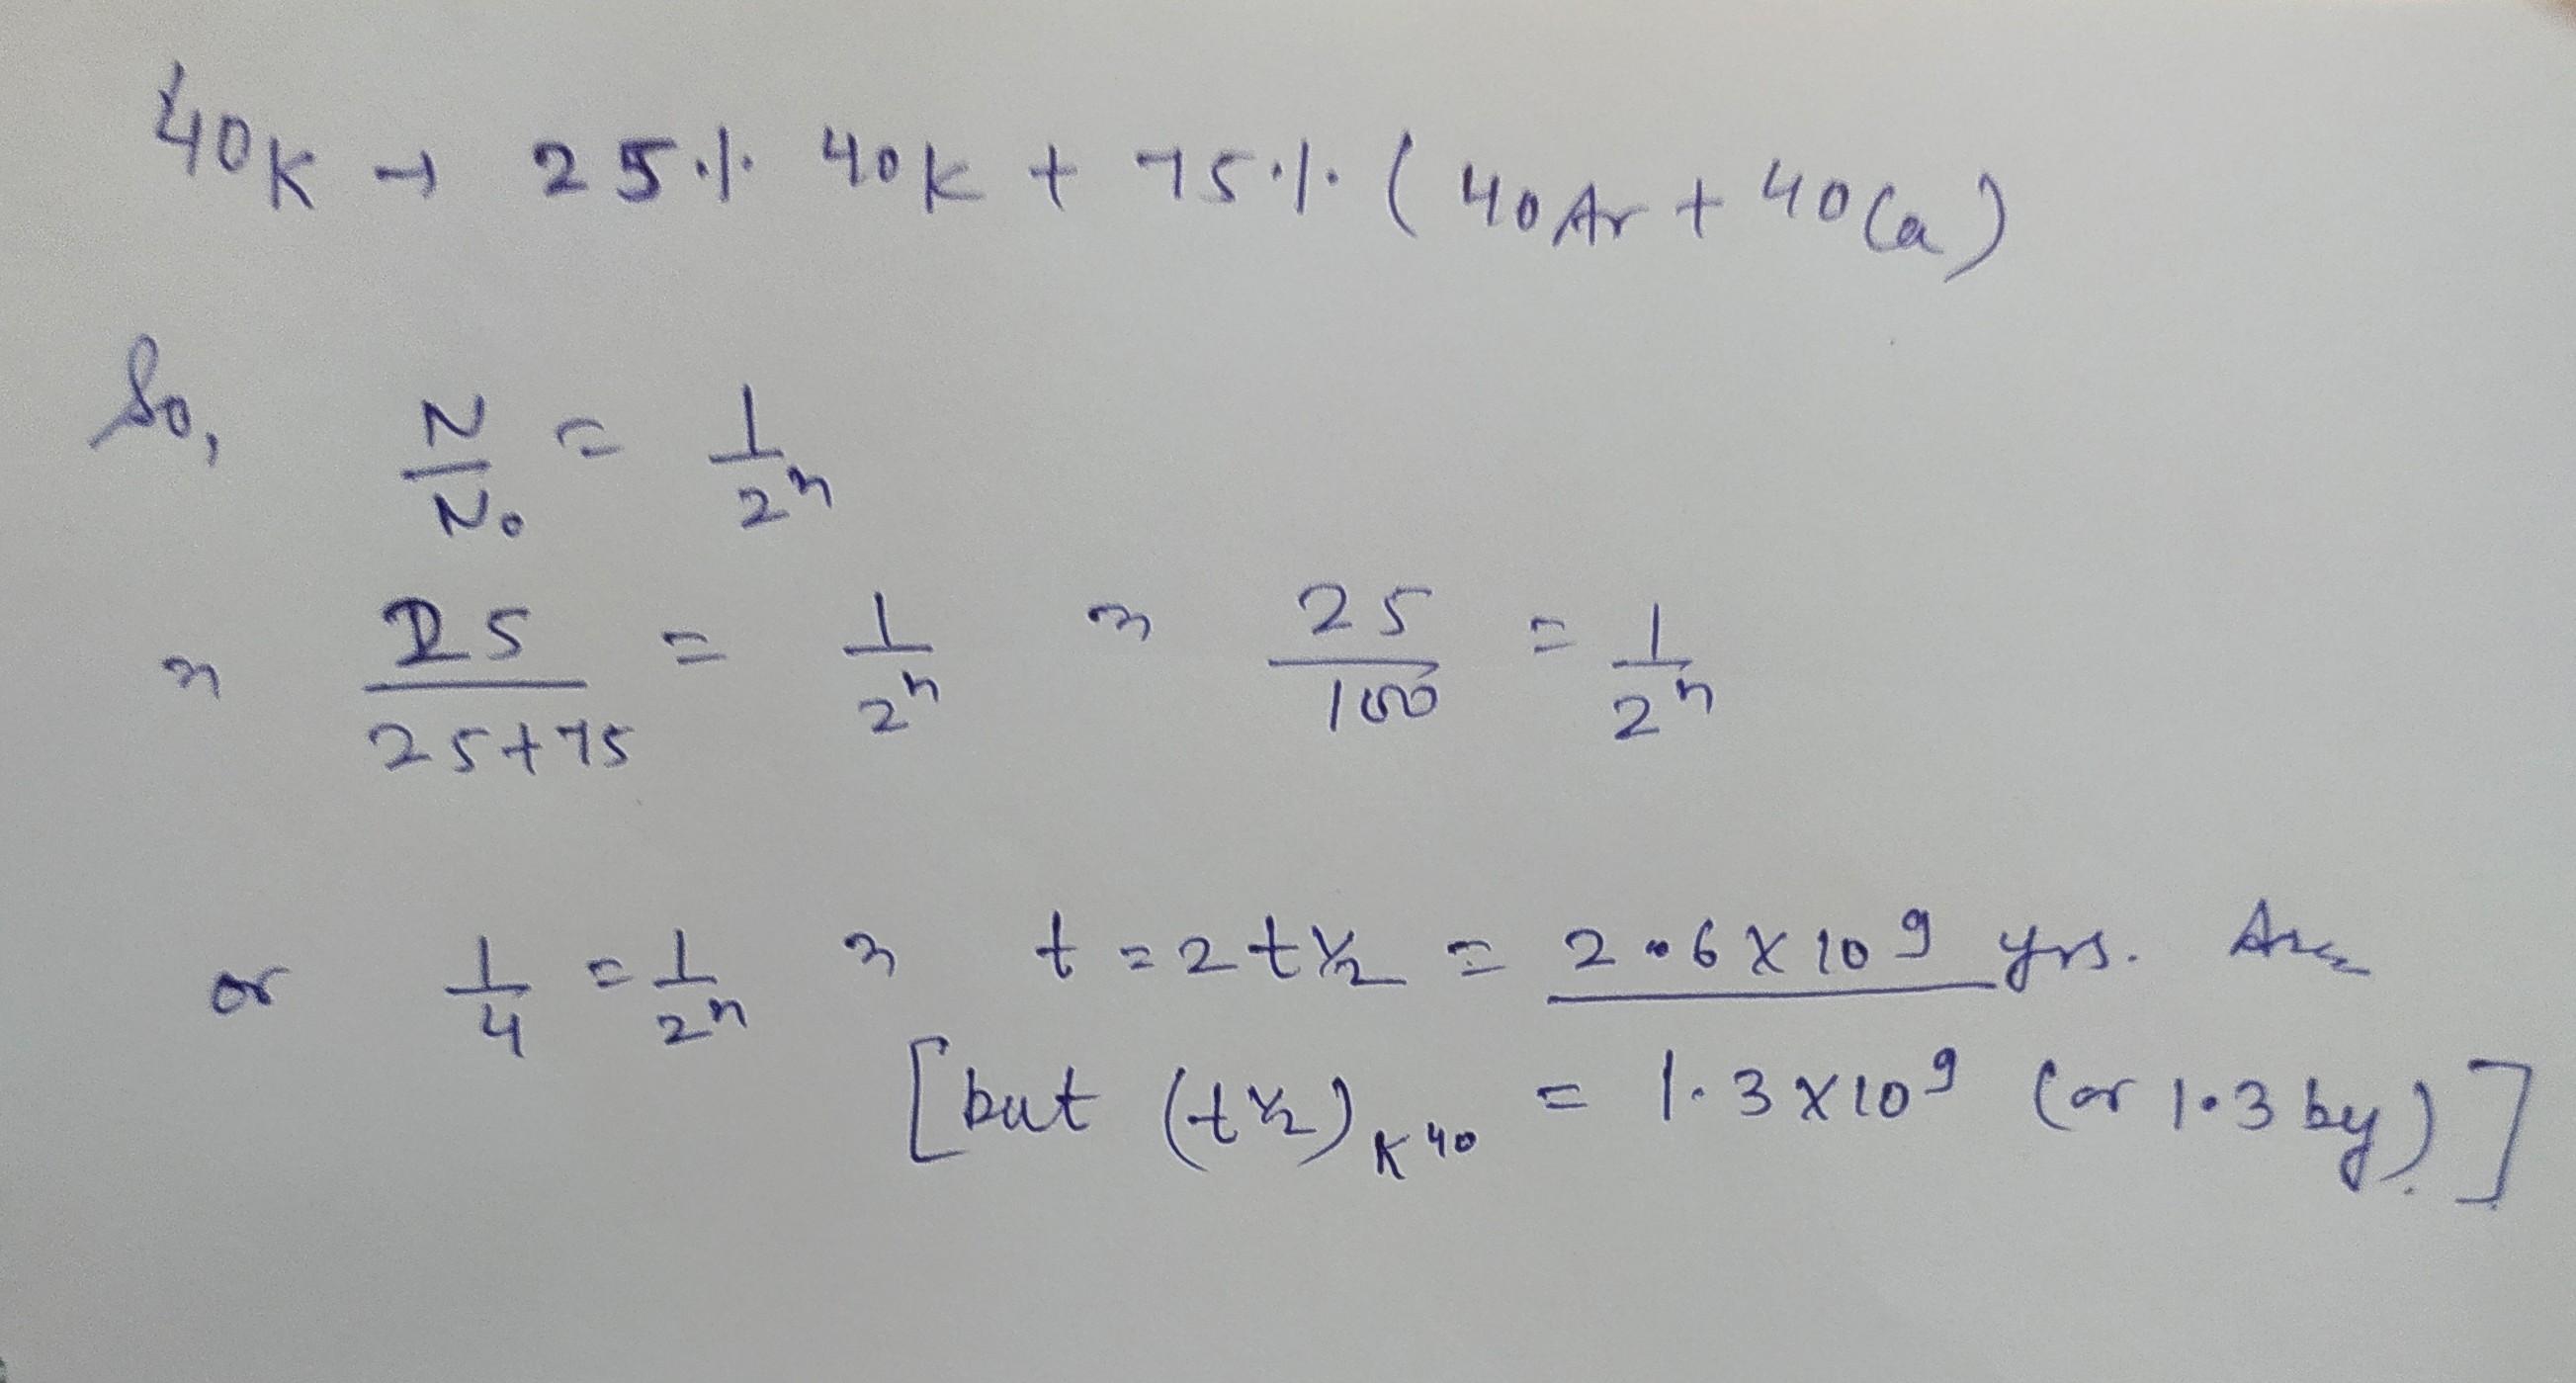 40K → 25% 40K + 75% (40Ar + 40Ca)
So, N/N₀ = 1/2ⁿ
⇒ 25/(25+75) = 1/2ⁿ ⇒ 25/100 = 1/2ⁿ
or 1/4 = 1/2ⁿ ⇒ t = 2t½ = 2.6 X 10⁹ yrs. Ans
[but (t½)K40 = 1.3 X 10⁹ (or 1.3 by)]